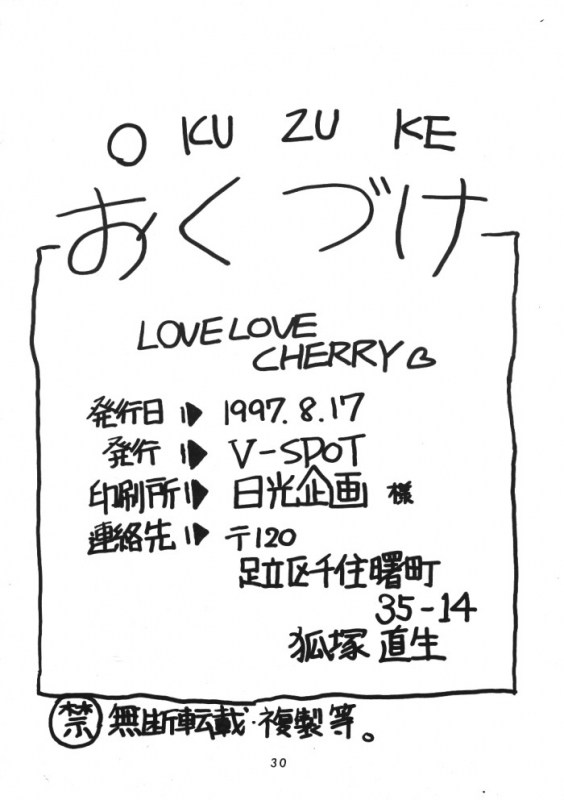 O KU ZU KE
おくづけ
LOVE LOVE
CHERRY♡
発行日 ▶ 1997.8.17
発行 ▶ V-SPOT
印刷所 ▶ 日光企画 様
連絡先 ▶ 〒120
足立区千住曙町
35-14
狐塚 直生
禁 無断転載・複製等。
30